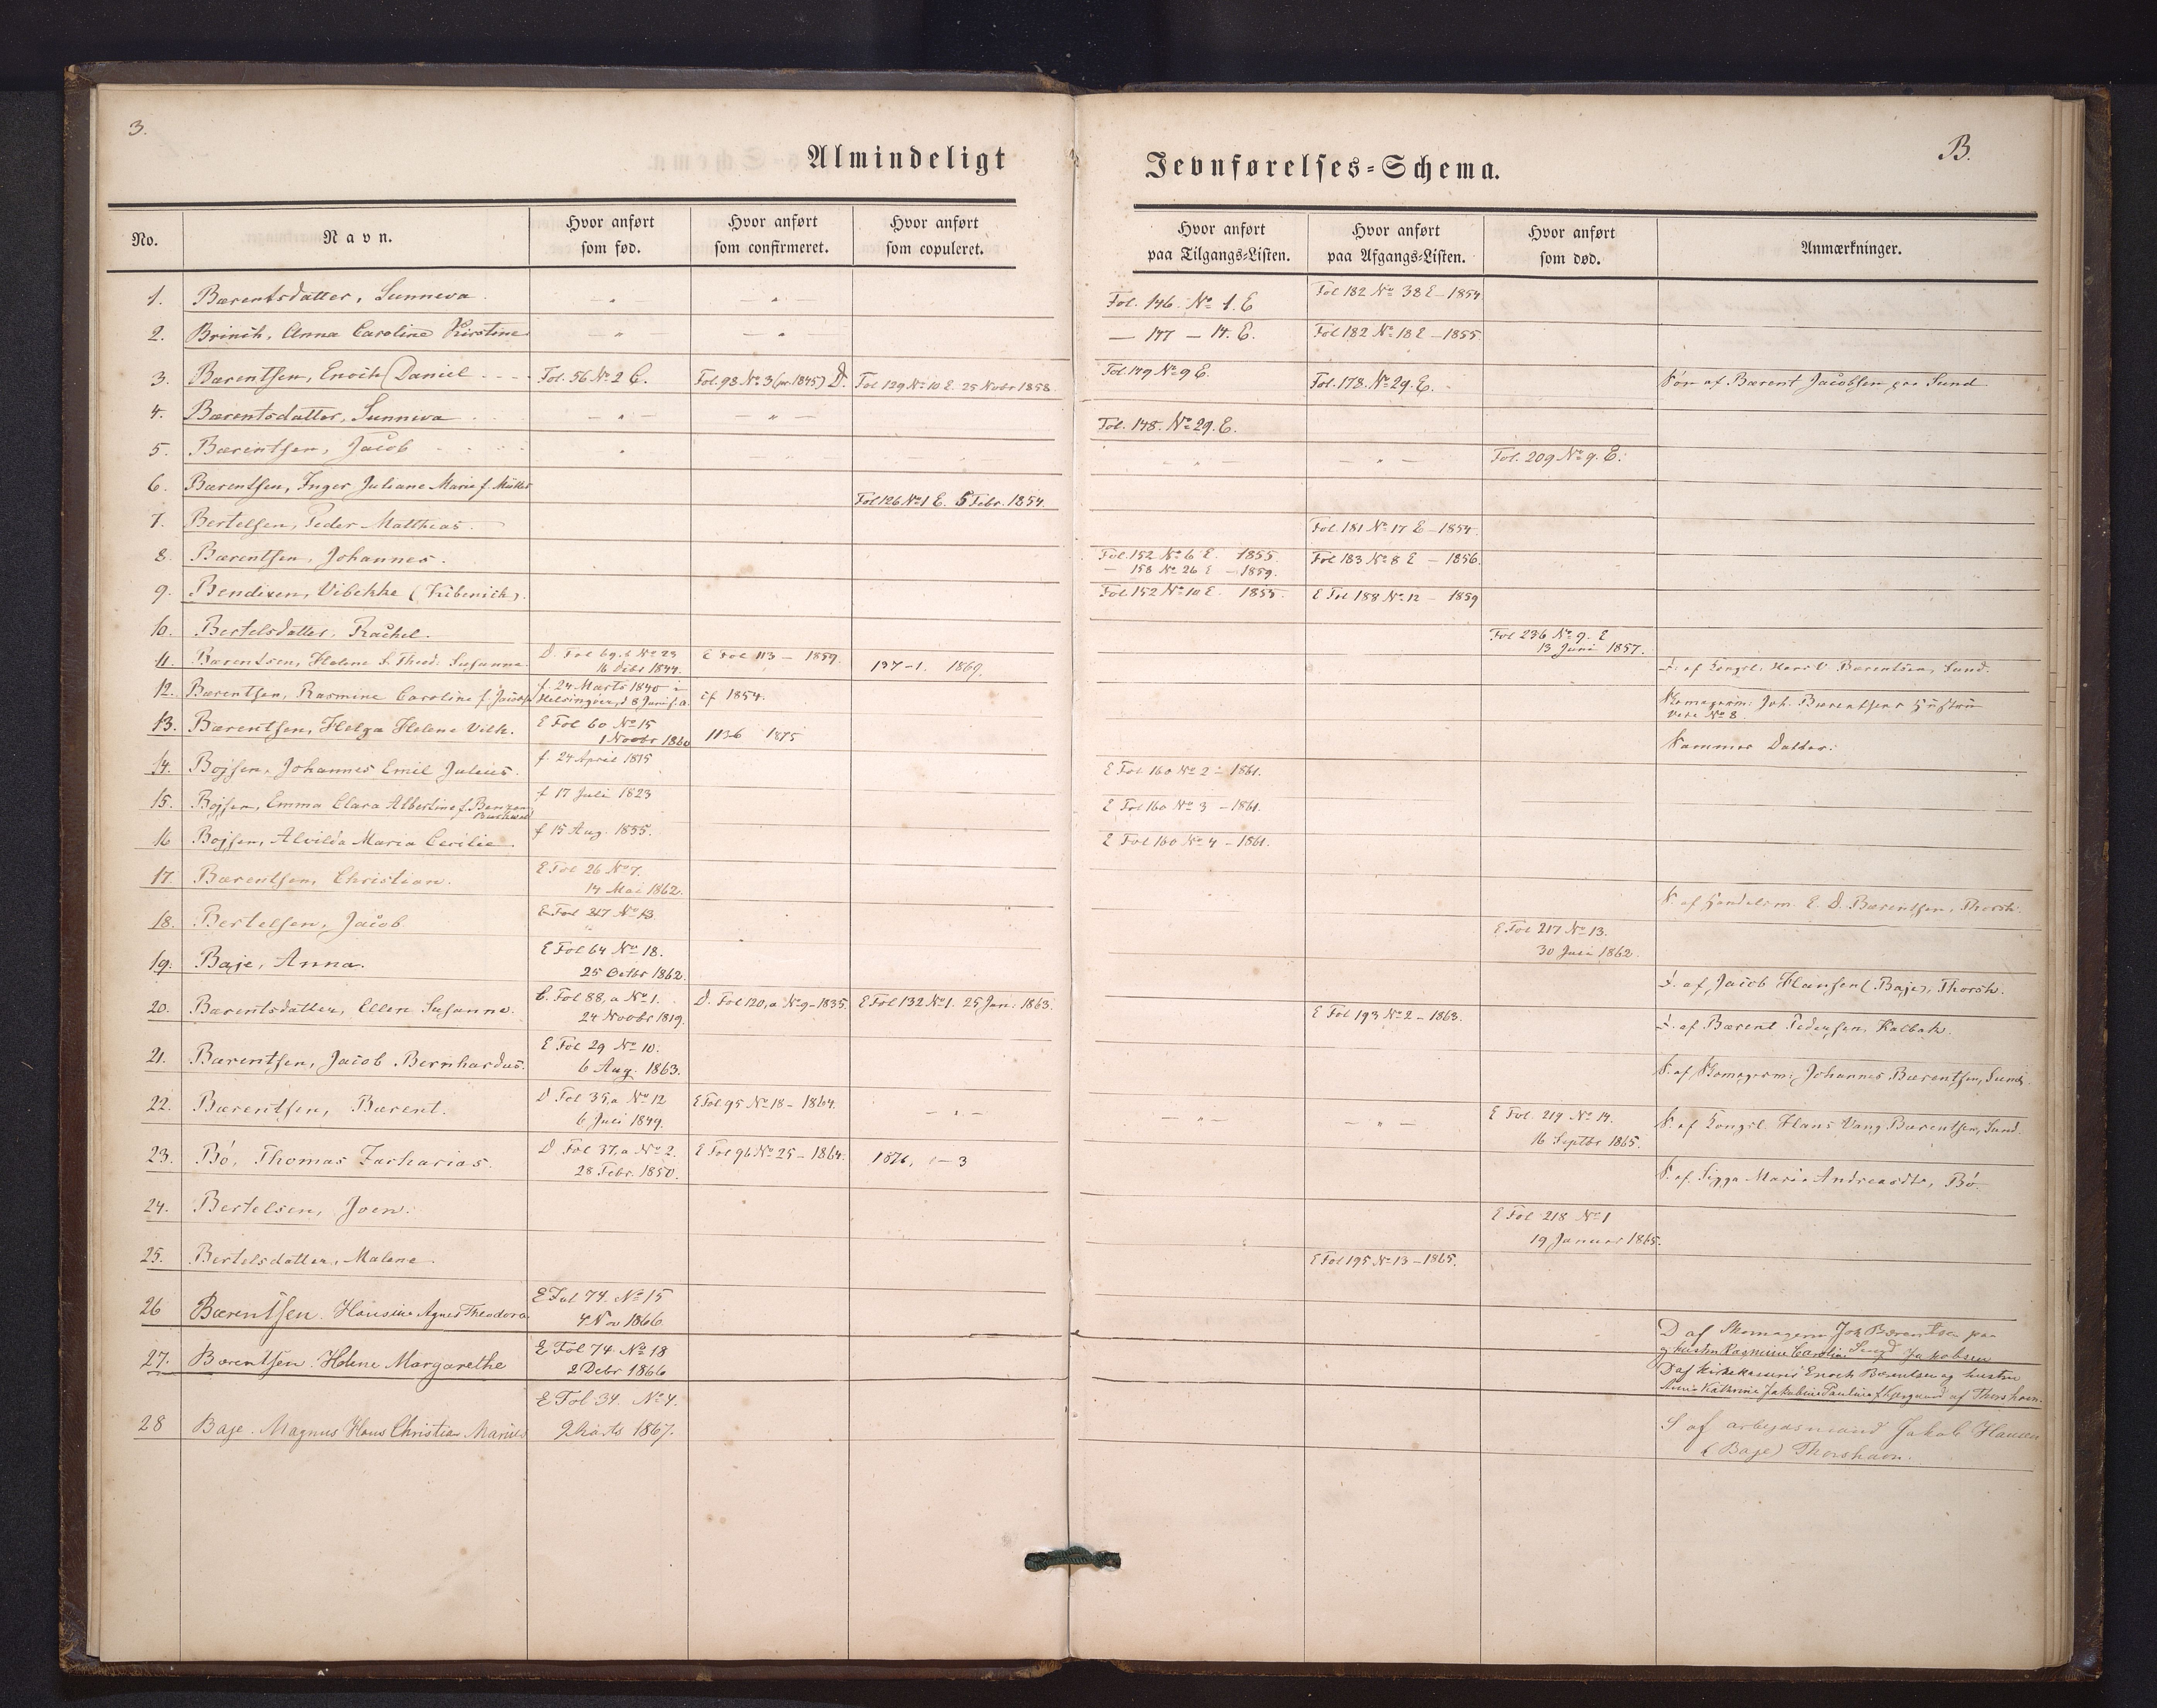 3.
B.
Almindeligt Jevnførelses-Schema.
No. Navn. Hvor anført som fød. Hvor anført som confirmeret. Hvor anført som copuleret. Hvor anført paa Tilgangs-Listen. Hvor anført paa Afgangs-Listen. Hvor anført som død. Anmærkninger.
1. Bærentsdatter, Sunneva. - „ - - „ - Fol. 146. No 1. E Fol 182 No 38 E - 1854
2. Brinch, Anna Caroline Kirstine - „ - „ — 147 — 14. E. Fol 182 No 18 E - 1855
3. Bærentsen, Enoch (Daniel Fol. 56 No 2 C. Fol. 98 No 3 (pr. 1845) D. Fol 129 No 10 E. 25 Novbr 1858. Fol 149 No 9 E. Fol. 178. No 29. E. Søn af Bærent Jacobsen paa Sund.
4. Bærentsdatter, Sunneva - „ - - „ - Fol. 148. No 29. E.
5. Bærentsen, Jacob „ - „ - - „ - - „ - Fol. 209 No 9. E.
6. Bærentsen, Inger Juliane Marie f. Müller Fol 126 No 1 E. 5 Febr. 1854.
7. Bertelsen, Peder Matthias. Fol. 181 No 17 E - 1854.
8. Bærentsen, Johannes. Fol. 152 No 6 E. 1855 Fol 183 No 8 E - 1856.
— 158 No 26 E - 1859.
9. Bendixen, Vibekke (Kibenich). Fol 152 No 10 E. 1855. E Fol 188 No 12 - 1859
10. Bertelsdatter, Rachel. Fol 236 No 9. E
13 Juni 1857.
11. Bærentsen, Helene S. Theod. Susanne D. Fol 69. b No 23 E Fol 113 - 1859. 137-1. 1869.
16 Debr 1844. D. af Kongsb. Hans V. Bærentsen, Sund.
12. Bærentsen, Rasmine Caroline f. Jacobs. f. 24 Marts 1840 i cf 1854. Skomagerm. Joh. Bærentsens Hustru
Helsingöer, d 8 Juni s. a. vide No 8.
13. Bærentsen, Helga Helene Vilh. E Fol 60 No 15 1136 1875
1 Novbr 1860 Sammes Datter.
14. Bojsen, Johannes Emil Julius. f. 24 April 1815 E Fol 160 No 2 - 1861.
15. Bojsen, Emma Clara Albertine f. Benzon f 17 Juli 1823 E Fol 160 No 3 - 1861.
16 Bojsen, Alvilda Maria Cecilie. f 15 Aug. 1855. E Fol 160 No 4 - 1861.
17. Bærentsen, Christian. E Fol 26 No 7.
14 Mai 1862. S. af Handelsm. E. D. Bærentsen, Thorsh.
18. Bertelsen, Jacob E Fol 217 No 13. E Fol 217 No 13.
30 Juni 1862.
19. Baje, Anna. E Fol 64 No 18.
25 Octbr 1862. D. af Jacob Hansen (Baje), Thorsh.
20. Bærentsdatter, Ellen Susanne. C. Fol 88, a No 1. D. Fol 120, a No 9 - 1835. E Fol 132 No 1. 25 Jan. 1863. E Fol 193 No 2 - 1863.
24 Novbr 1819. D. af Bærent Pedersen, Kalbak.
21. Bærentsen, Jacob Bernhardus. E Fol 29 No 10.
6 Aug. 1863. S. af Skomagerm. Johannes Bærentsen, Sund.
22. Bærentsen, Bærent. D Fol 35, a No 12 E Fol 95 No 18 - 1864. - „ - - „ - - „ - E Fol. 219 No 14.
6 Juli 1849. 16 Septbr 1865. S. af Kongsl. Hans Vang Bærentsen, Sund.
23. Bö, Thomas Zacharias. D Fol 37, a No 2. E Fol 96 No 25 - 1864. 1876, - 3
28 Febr. 1850. S. af Sigga Maria Andreasdtr, Bö.
24. Bertelsen, Joen. E Fol 218 No 1
19 Januar 1865.
25. Bertelsdatter, Malene. E Fol 195 No 13 - 1865.
26 Bærentsen. Hansine Agnes Theodora E Fol 74. No 15
4 Nov 1866 D af Skomagerm Joh Bærentsen paa
Sund
g hustru Rasmine Caroline Jakobsen
27. Bærentsen. Helene Margarethe E Fol 74 No 18
2 Debr 1866 D af Enoch Bærentsen og hustru
Anna Kathrine Jakobine Pauline af Thorshavn.
28 Baje. Magnus Hans Christian Marius E Fol 34. No 4.
Marts 1867. S af arbejdsmand Jakob Hansen
(Baje) Thorshavn.